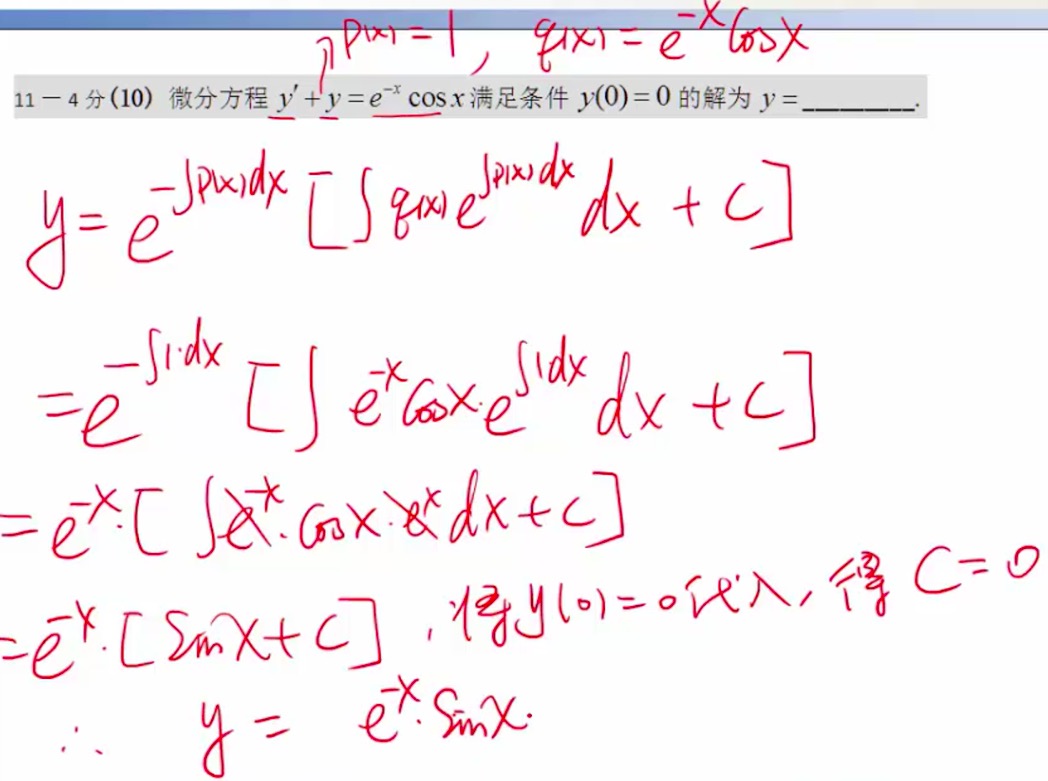 p(x) = 1, q(x) = e^{-x} cosx
11－4分(10) 微分方程 y′ + y = e^{-x} cos x 满足条件 y(0) = 0 的解为 y = ________.
y = e^{-∫p(x)dx} [∫q(x)e^{∫p(x)dx} dx + C]
= e^{-∫1·dx} [∫ e^{-x} cosx·e^{∫1dx} dx + C]
= e^{-x}·[∫e^{-x}·cosx·e^{x} dx + C]
= e^{-x}·[sinx + C], 将y(0)=0代入, 得 C = 0
∴ y = e^{-x}·sinx.